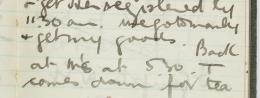 & get her registered by
11.30 am. We go to Manly
& get my goods. Back
at M's at 5.30. T
comes down for tea